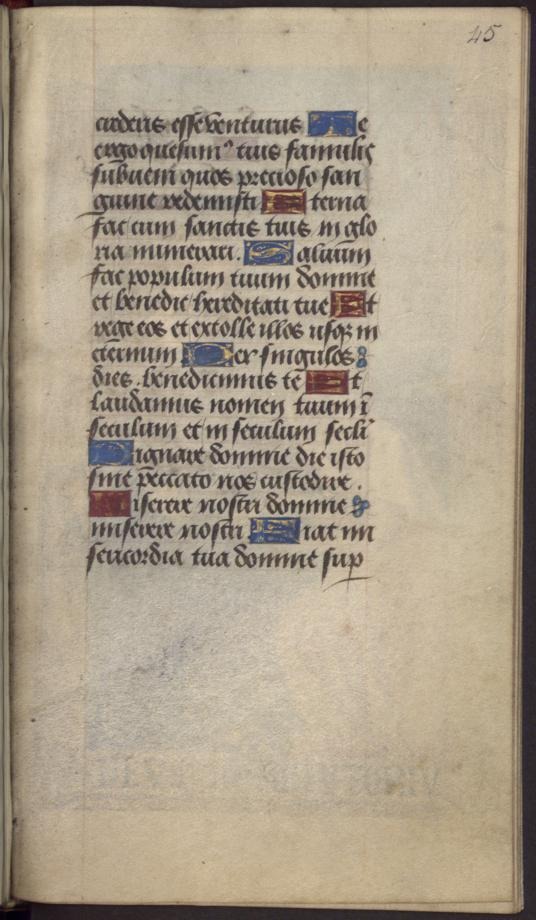 45
crederis esse venturus Te
ergo quesumꝰ tuis famulis
subueni quos precioso san
guine redemisti Eterna
fac cum sanctis tuis in glo
ria numerari. Saluum
fac populum tuum domine
et benedic hereditati tue Et
rege eos et extolle illos usqꝫ in
eternum Per singulos
dies. benedicimus te Et
laudamus nomen tuum ī
seculum et in seculum secli
Dignare domine die isto
sine peccato nos custodire.
Miserere nostri domine
miserere nostri Fiat mi
sericordia tua domine sup